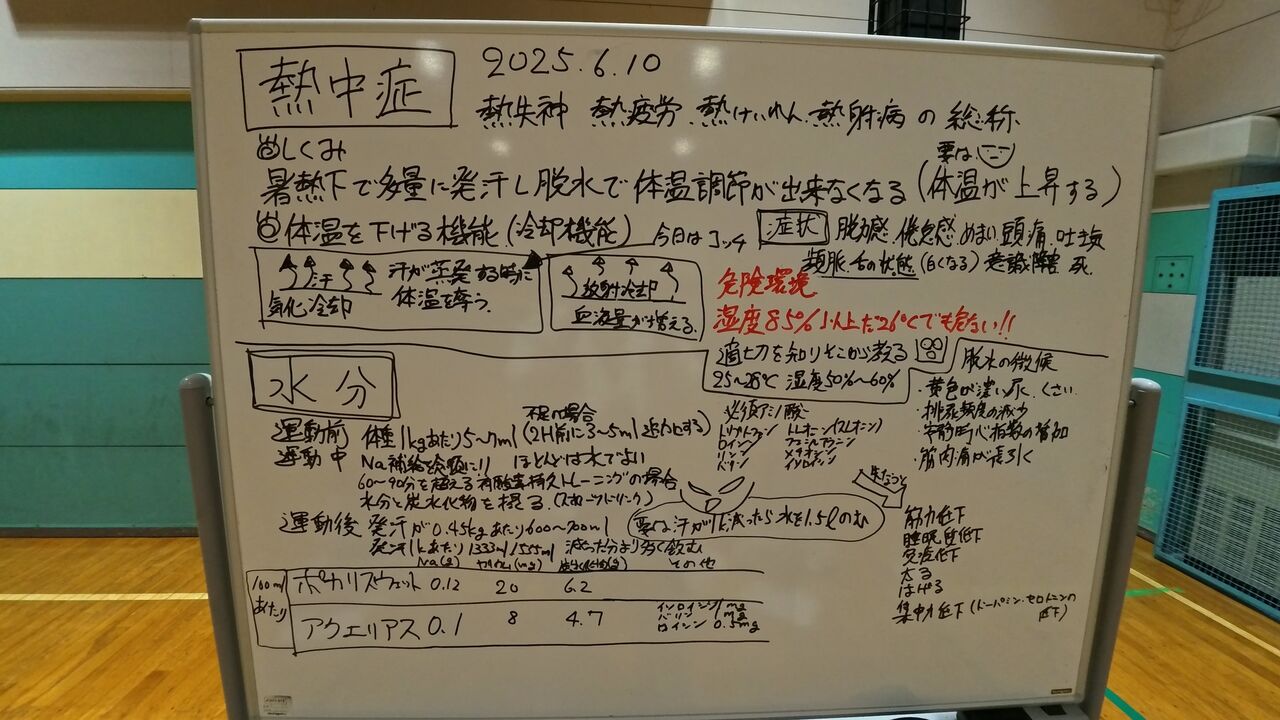 熱中症
2025.6.10
熱失神 熱疲労 熱けいれん 熱射病の総称
しくみ
要は
暑熱下で多量に発汗し脱水で体温調節が出来なくなる(体温が上昇する)
体温を下げる機能(冷却機能) 今日はコッチ
汗 汗が蒸発する時に
気化冷却 体温を奪う.
放射冷却
血液量が増える.
症状 脱力感.倦怠感.めまい.頭痛.吐き気
頻脈.舌の状態(白くなる)意識障害 死.
危険環境
湿度85%以上だ26℃でも危ない!!
適切を知りそこから考える
25~28℃ 湿度50%~60%
水分
運動前 体重1kgあたり5~7ml(2H前に3~5ml追加する)
不足の場合
運動中 Na補給を頭に!! ほとんどは水でよい
60~90分を超える有酸素持久トレーニングの場合
水分と炭水化物を摂る.(スポーツドリンク)
運動後 発汗が0.45kgあたり600~700ml
発汗1kgあたり1333ml/1555ml 減った分より多く飲む
要は汗が1k減ったら水を1.5lのむ
必須アミノ酸
トリプトファン トレオニン(スレオニン)
ロイシン フェニルアラニン
リジン メチオニン
バリン イソロイシン
脱水の徴候
・黄色が濃い尿.くさい
・排尿頻度の減少
・安静時心拍数の増加
・筋肉痛が長引く
筋力低下
睡眠質低下
免疫低下
太る
はげる
集中力低下(ドーパミン・セロトニンの低下)
100mlあたり
Na(g) カリウム(mg) 炭水化物(g) その他
ポカリスウェット 0.12 20 6.2
アクエリアス 0.1 8 4.7 イソロイシン1mg
バリン1mg
ロイシン0.5mg